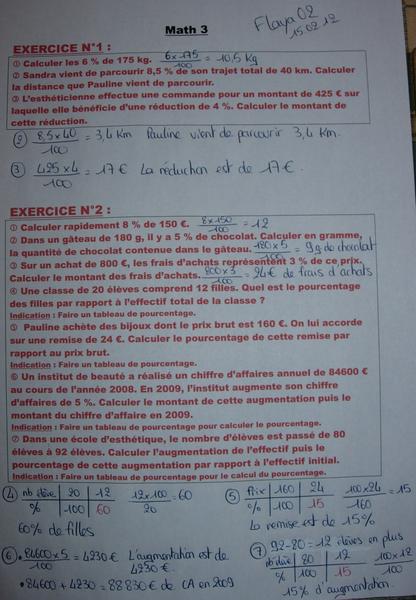 Math 3
Flaya02
15.02.12
EXERCICE N°1 :
① Calculer les 6 % de 175 kg. 6x175/100 = 10,5 Kg
② Sandra vient de parcourir 8,5 % de son trajet total de 40 km. Calculer
la distance que Pauline vient de parcourir.
③ L'esthéticienne effectue une commande pour un montant de 425 € sur
laquelle elle bénéficie d'une réduction de 4 %. Calculer le montant de
cette réduction.
② 8,5x40/100 = 3,4 Km Pauline vient de parcourir 3,4 Km.
③ 425x4/100 = 17 € La réduction est de 17 €.
EXERCICE N°2 :
① Calculer rapidement 8 % de 150 €. 8x150/100 = 12
② Dans un gâteau de 180 g, il y a 5 % de chocolat. Calculer en gramme,
la quantité de chocolat contenue dans le gâteau. 180x5/100 = 9g de chocolat
③ Sur un achat de 800 €, les frais d'achats représentent 3 % de ce prix.
Calculer le montant des frais d'achats. 800x3/100 = 24€ de frais d'achats
④ Une classe de 20 élèves comprend 12 filles. Quel est le pourcentage
des filles par rapport à l'effectif total de la classe ?
Indication : Faire un tableau de pourcentage.
⑤ Pauline achète des bijoux dont le prix brut est 160 €. On lui accorde
sur une remise de 24 €. Calculer le pourcentage de cette remise par
rapport au prix brut.
Indication : Faire un tableau de pourcentage.
⑥ Un institut de beauté a réalisé un chiffre d'affaires annuel de 84600 €
au cours de l'année 2008. En 2009, l'institut augmente son chiffre
d'affaires de 5 %. Calculer le montant de cette augmentation puis le
montant du chiffre d'affaire en 2009.
Indication : Faire un tableau de pourcentage pour calculer le pourcentage.
⑦ Dans une école d'esthétique, le nombre d'élèves est passé de 80
élèves à 92 élèves. Calculer l'augmentation de l'effectif puis le
pourcentage de cette augmentation par rapport à l'effectif initial.
Indication : Faire un tableau de pourcentage pour le calcul du pourcentage.
④ nb élève | 20 | 12 12x100/20 = 60
% | 100 | 60
60% de filles
⑤ Prix | 160 | 24 100x24/160 = 15
% | 100 | 15
La remise est de 15%
⑥ • 84600x5/100 = 4230 € L'augmentation est de
4230 €.
• 84600 + 4230 = 88830 € de CA en 2009
⑦ 92-80 = 12 élèves en plus
nb élève | 80 | 12 100x12/80 = 15
% | 100 | 15
15% d'augmentation.